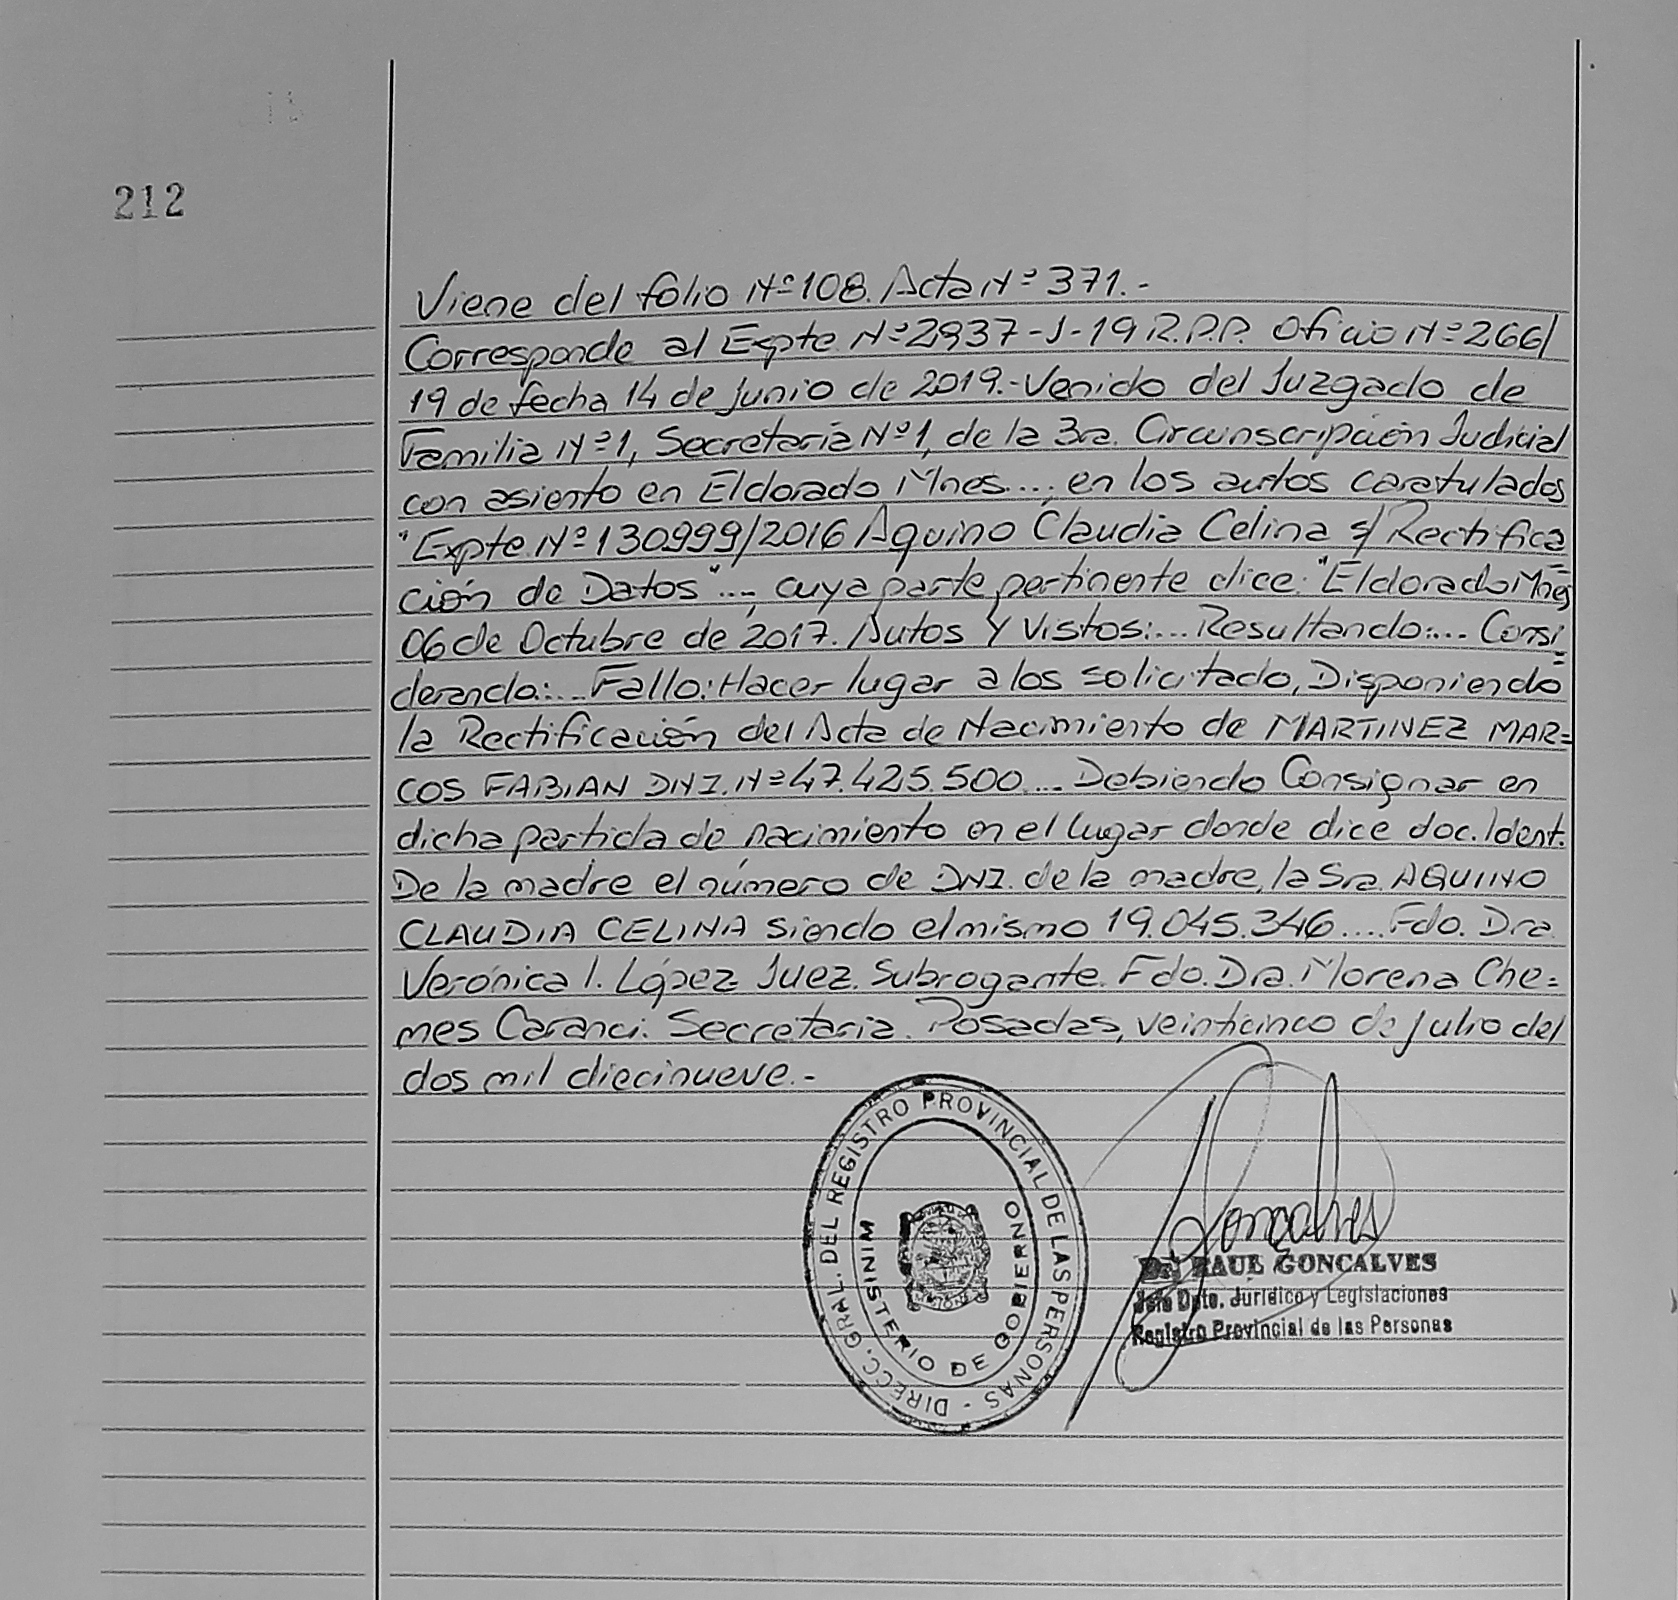 212
Viene del folio Nº108. Acta Nº371.-
Corresponde al Expte Nº2937-J-19 R.P.P. Oficio Nº266/
19 de fecha 14 de Junio de 2019.-Venido del Juzgado de
Familia Nº1, Secretaria Nº1, de la 3ra. Circunscripción Judicial
con asiento en Eldorado Mnes..., en los autos caratulados
"Expte. Nº130999/2016 Aquino Claudia Celina s/ Rectifica=
ción de Datos"..., cuya parte pertinente dice: "Eldorado Mnes
06 de Octubre de 2017. Autos y Vistos:... Resultando:... Consi=
derando:... Fallo: Hacer lugar a los solicitado, Disponiendo
la Rectificación del Acta de Nacimiento de MARTINEZ MAR=
COS FABIAN DNI. Nº47.425.500.... Debiendo Consignar en
dicha partida de nacimiento en el lugar donde dice doc. Ident.
De la madre el número de DNI. de la madre, la Sra. AQUINO
CLAUDIA CELINA siendo el mismo 19.045.346.... Fdo. Dra.
Verónica I. López Juez. Subrogante. Fdo. Dra. Morena Che=
mes Caranci. Secretaria. Posadas, veinticinco de Julio del
dos mil diecinueve.-
DIRECC. GRAL. DEL REGISTRO PROVINCIAL DE LAS PERSONAS -
MINISTERIO DE GOBIERNO
Goncalves
Dr. RAUL GONCALVES
Jefe Dpto. Jurídico y Legislaciones
Registro Provincial de las Personas